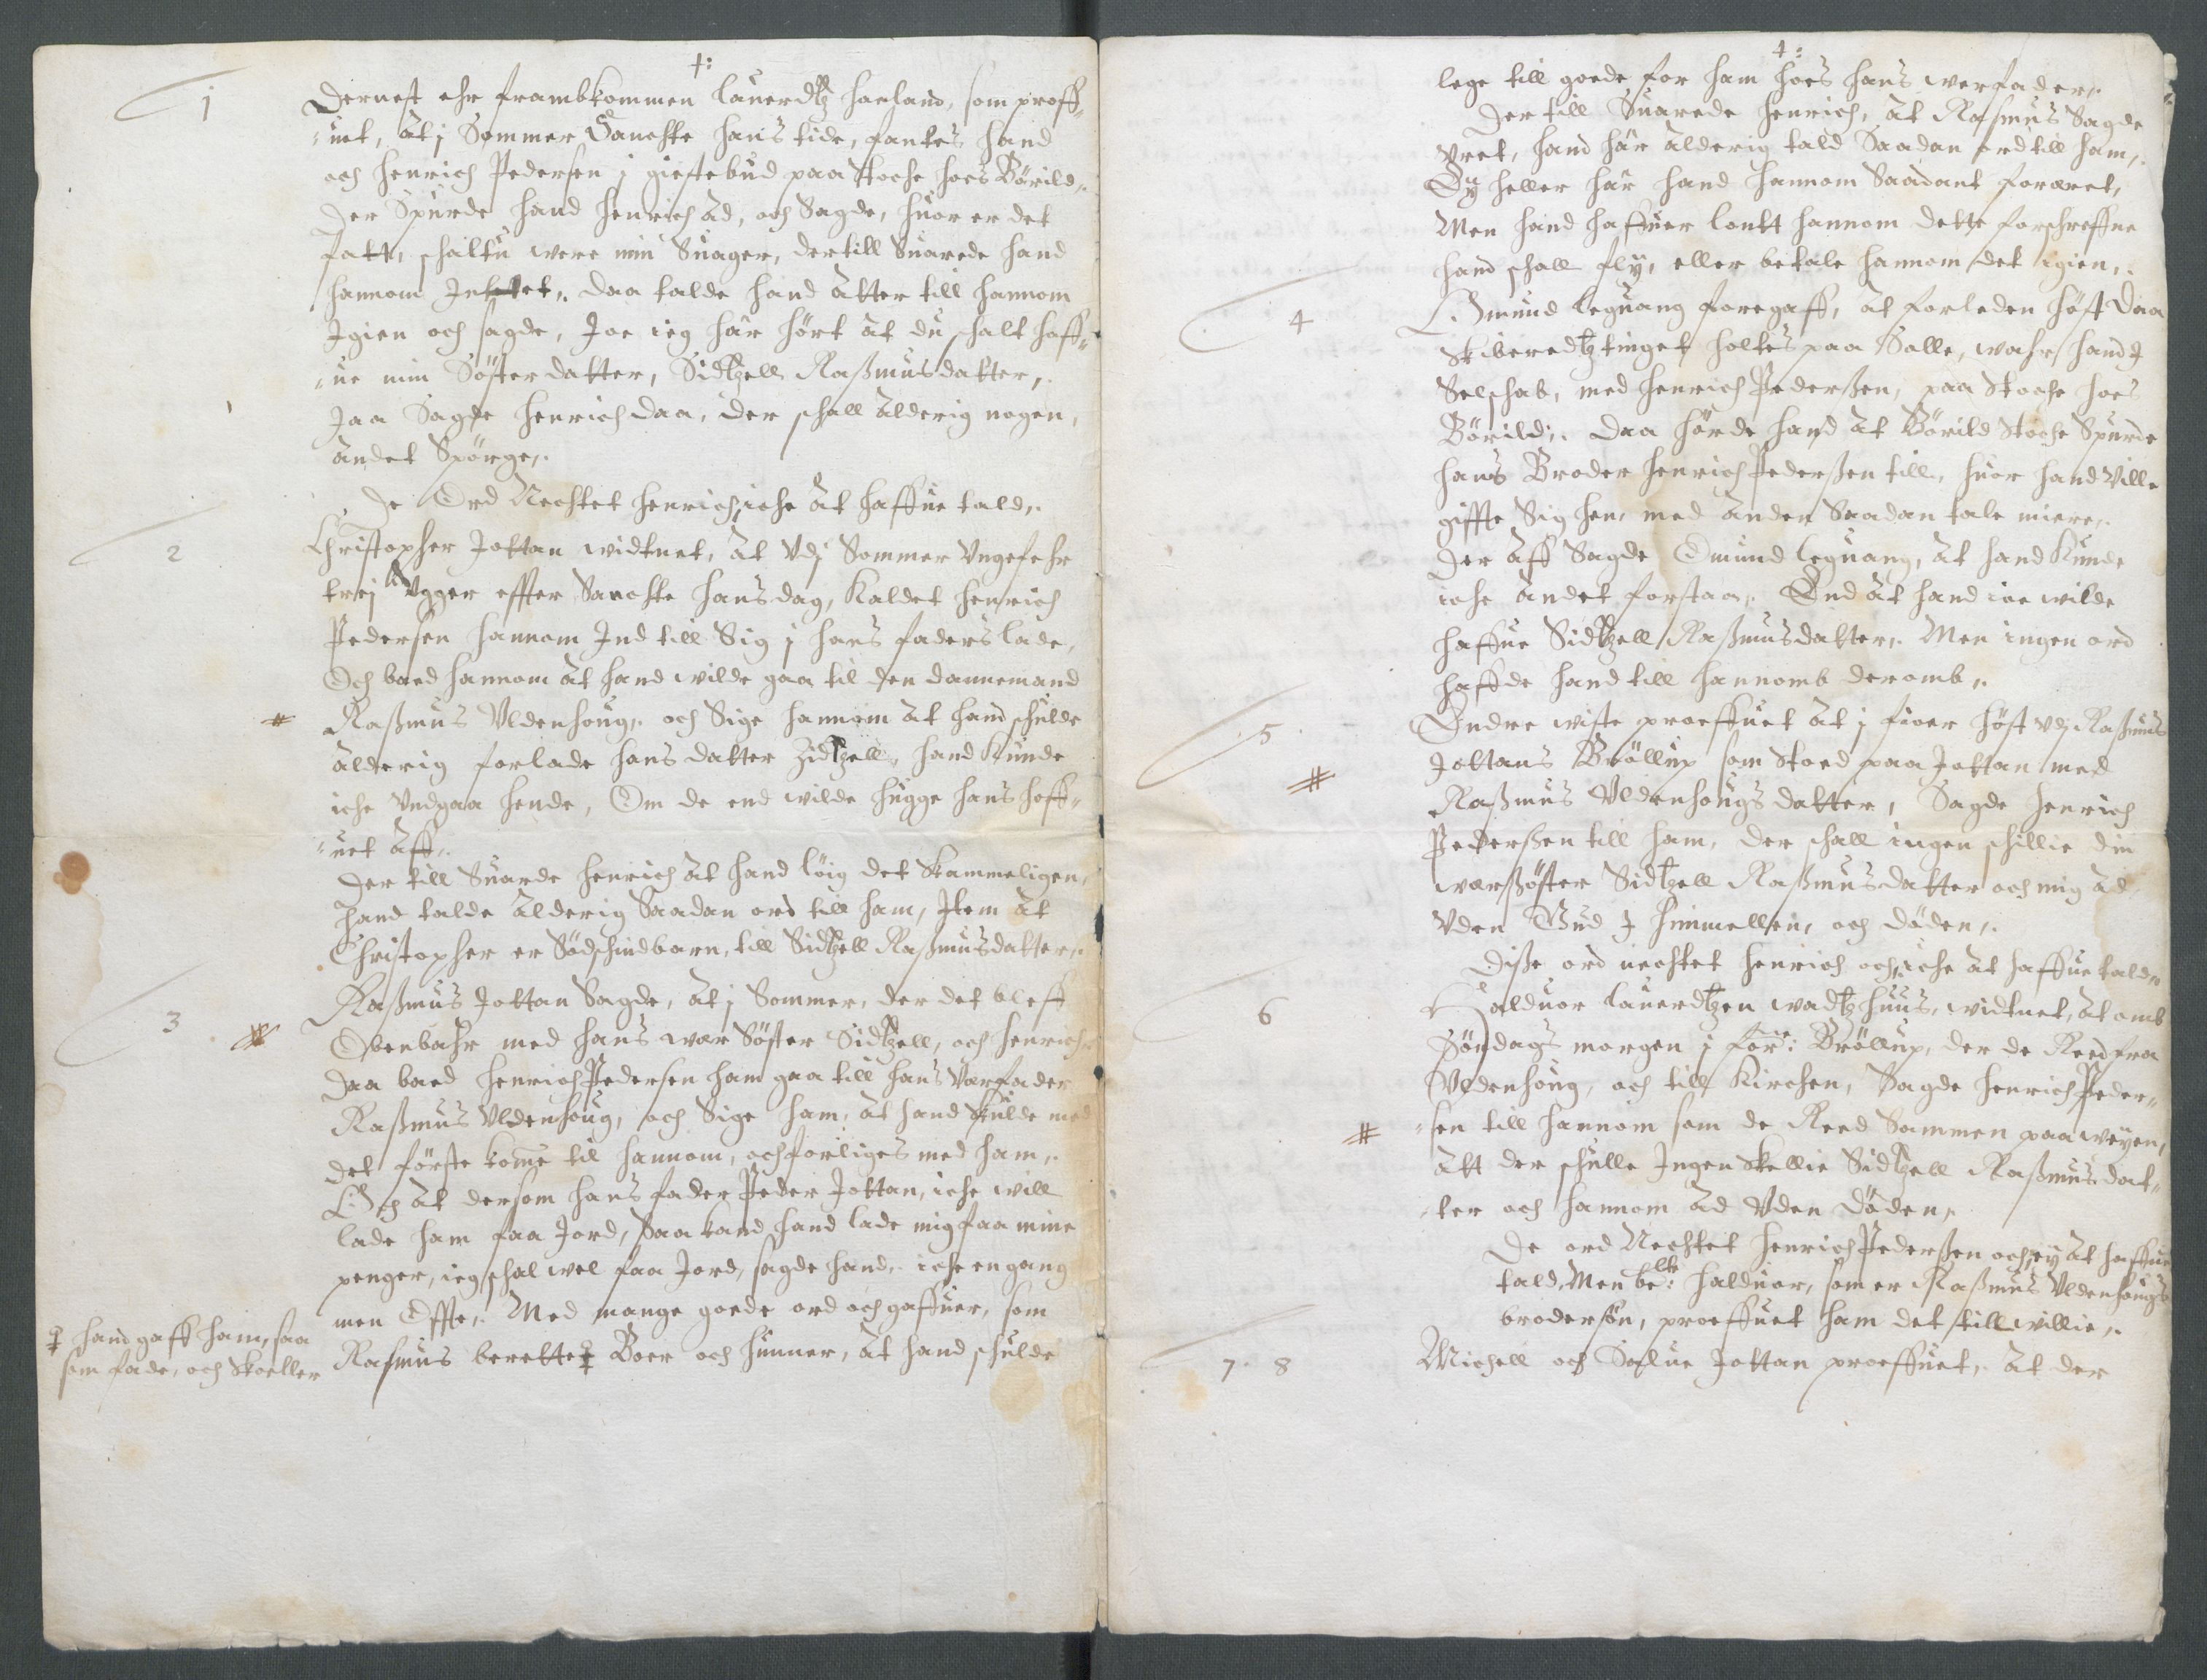 +:
1
Dernest ehr frambkommen lauerdtz Harland, som proff-
uet, At j Sommer Sanchte Hans tide, fantes hand
och Henrich Pedersen j gieftebud paa Stoche hoes Börild,
Der Spurde hand Henrich ad, och Sagde, huor er det
fatt, schaltu were min Suager, dertill Suarede hand
hannom Inttet, Daa talde hand Atter till hannom
Igien och sagde, Joe ieg här hört at du schalt haff-
ue min Söster datter, Sidtzell Raßmusdatter,
Jaa Sagde Henrich daa, der schall alderig nogen,
andet Spörge,
De Ord Nechtet Henrich, iche at haffue tald,
2
Christopher Jottan widtnet, At Vdj Sommer Vngefehr
trej Vgger effter Sanchte Hans dag, Kaldet Henrich
Pedersen hannom Ind till Sig j hans faders lade,
Och baed hannom at hand wilde gaa til den dannemand
Raßmus Vldenhoug, och Sige hannom at hand schulde
alderig forlade hans datter Zidtzell, hand kunde
iche Vndgaa hende, Om de end wilde hugge hans hoff-
uet aff,
Der till Suarde Henrich at hand löig det Skammeligen,
hand talde alderig Saadan ord till ham, Item At
Christopher er Södschindbarn, till Sidtzell Raßmusdatter,
3
Raßmus Jottan Sagde, At j Sommer, der det bleff
Obenbahr med hans wer Söster Sidtzell, och Henrich
Daa baed Henrich Pedersen ham gaa till hans Verfader
Raßmus Vldenhoug, och Sige ham, at hand skulde med
det förste kome til hannom, och forliges med ham,
Och at dersom hans fader Peder Jottan, iche will
lade ham faa Jord, Saa kand hand lade mig faa mine
penger, ieg schal wel faa Jord, sagde hand, iche en gang
men Offte, Med mange goede ord och gaffuer, som
Rasmus berettet Boer och hunner, at hand schulde
hand gaff ham, saa
som fade, och Skaeller
+:
lege till goede for ham hoes hans werfader,
Der till Suarede Henrich, at Rasmus Sagde
Vret, hand här alderig tald Saadan ord till ham,
Ey heller här hand hannom Saadant foræret,
Men hand haffuer lontt hannom dette forschreffne
hand schall fly, eller betale hannom det igien,
4
Omund leguang foregaff, at forleden höst Daa
Skiberedtz tinget holtes paa Salle, wahr hand J
Selschab, med Henrich Pederßen, paa Stoche hoes
Börild, Daa hörde hand at Börild Stoche Spurde
hans Broder Henrich Pederßen till, huor hand Ville
giffte Sig hen, med anden Saadan tale miere,
Der aff Sagde Omund leguang, at hand Kunde
iche andet forstaa, End at hand ioe wilde
haffue Sidtzell Raßmusdatter, Men ingen ord
haffde hand till hannomb deromb,
5
Endre wiste proffuet at j fioer höst vdj Raßmus
Jottans Bröllup som Stoed paa Jottan med
Raßmus Vldenhougs datter, Sagde Henrich
Pederßen till ham, der schall ingen schillie din
werßöster Sidtzell Raßmusdatter och mig ad
Vden Gud J Himmellen, och döden,
Diße ord nechtet Henrich och, iche at haffue tald,
6
Halduor lauerdtzen wadtzhuus, widtnet, at omb
Söndags morgen j for:ne Bröllup, der de Reed fra
Vldenhoug, och till Kirchen, Sagde Henrich Peder-
sen till hannom som de Reed Sammen paa weyen,
Att der schulle Ingen Skellie Sidtzell Raßmus dat-
ter och hannom ad Vden Döden,
De ord Nechtet Henrich Pederßen och, ey at haffue
tald, Men be:lte Halduor, som er Raßmus Vldenhougs
brodersön, proffuet ham det till willie,
7. 8
Michell och Saflue Jottan proffuet, At der